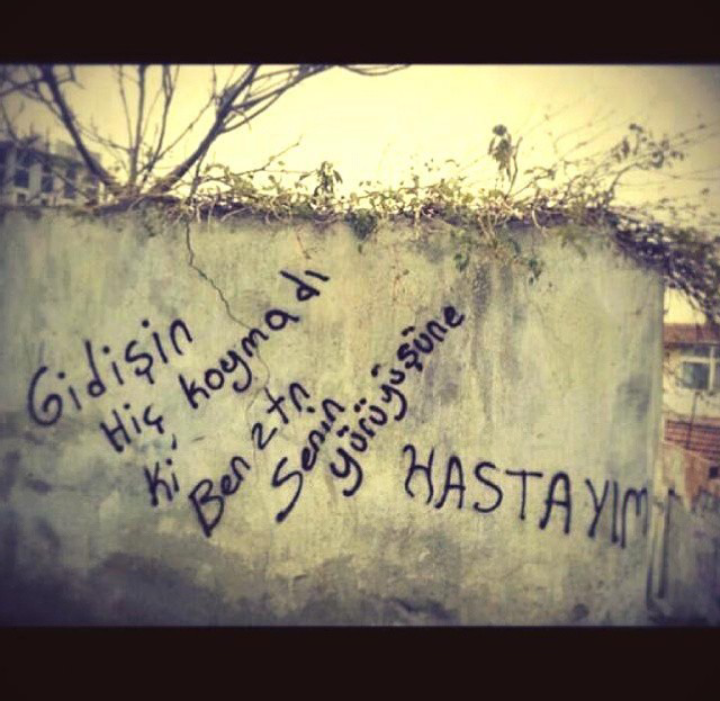 Gidişin
Hiç koymadı
Ki
Ben ztn
Senin
yürüyüşüne
HASTAYIM